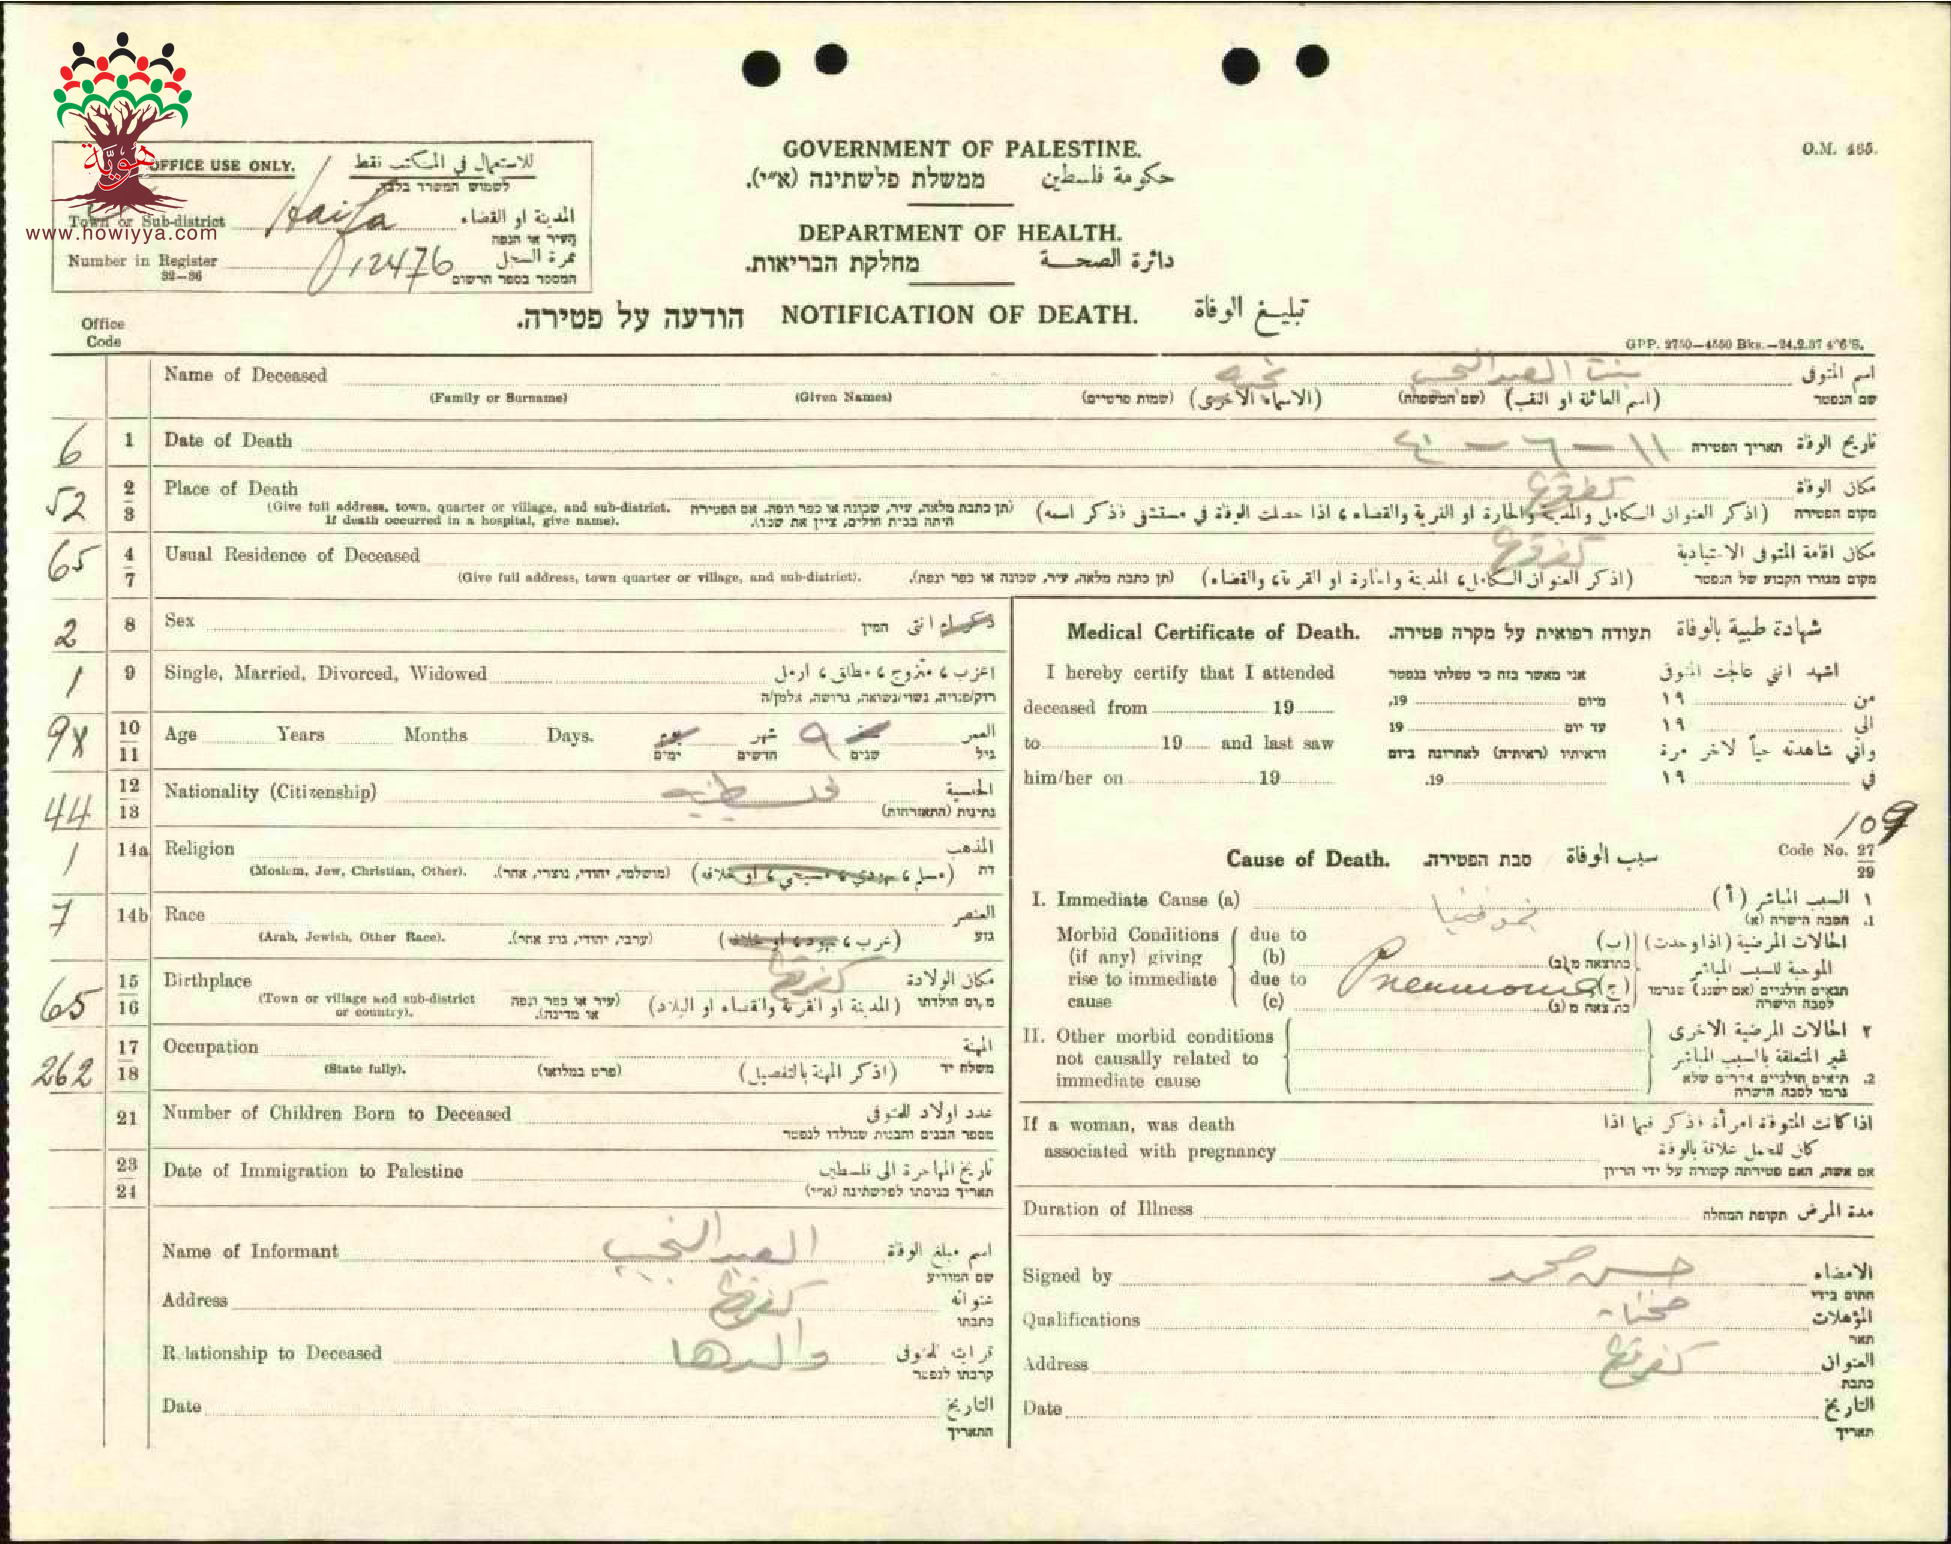 هويّة
www.howiyya.com
OFFICE USE ONLY. للاستعمال في المكتب فقط
לשמוש המשרד בלבד
Town or Sub-district Haifa المدينة او القضاء
העיר או הנפה
Number in Register 12476 نمرة السجل
32—36 המספר בספר הרשום
GOVERNMENT OF PALESTINE.
ממשלת פלשתינה (א״י). حكومة فلسطين
DEPARTMENT OF HEALTH.
מחלקת הבריאות. دائرة الصحة
O.M. 465.
הודעה על פטירה. NOTIFICATION OF DEATH. تبليغ الوفاة
GPP. 2750—4550 Bks.—24.2.37 4"6'S.
Office
Code
Name of Deceased بنت العبد اسم المتوفى
(Family or Surname) (Given Names) (שמות פרטיים) (الاسماء الاخرى) (שם המשפחה) (اسم العائلة او اللقب) שם הנפטר
6 1 Date of Death ١١ — ٦ — ٤٠ תאריך הפטירה تاريخ الوفاة
52 2 3 Place of Death كفرقرع مكان الوفاة
(Give full address, town, quarter or village, and sub-district. If death occurred in a hospital, give name).
(תן כתבת מלאה, עיר, שכונה או כפר ונפה. אם הפטירה היתה בבית חולים, ציין את שמו).
(اذكر العنوان الكامل والمدينة والحارة او القرية والقضاء، اذا حصلت الوفاة في مستشفى فذكر اسمه) מקום הפטירה
65 4 7 Usual Residence of Deceased كفرقرع مكان اقامة المتوفى الاعتيادية
(Give full address, town quarter or village, and sub-district). (תן כתבת מלאה, עיר, שכונה או כפר ונפה). (اذكر العنوان الكامل، المدينة والحارة او القرية، والقضاء) מקום מגורו הקבוע של הנפטר
2 8 Sex המין ذكر او انثى
1 9 Single, Married, Divorced, Widowed اعزب، متزوج، مطلق، ارمل
רוק/פנויה, נשוי/נשואה, גרושה, אלמן/ה
9X 10 11 Age Years Months Days. يوم شهر ٩ سنة العمر
ימים חדשים שנים גיל
44 12 13 Nationality (Citizenship) فلسطينيه الجنسية
נתינות (התאזרחות)
1 14a Religion المذهب
(Moslem, Jew, Christian, Other). (מושלמי, יהודי, נוצרי, אחר). (مسلم، يهودي، مسيحي، او خلافه) דת
7 14b Race العنصر
(Arab, Jewish, Other Race). (ערבי, יהודי, גזע אחר). (عرب، يهود، او خلافه) גזע
65 15 16 Birthplace كفرقرع مكان الولادة
(Town or village and sub-district or country). (עיר או כפר ונפה או מדינה). (المدينة او القرية والقضاء او البلاد) מקום הולדתו
262 17 18 Occupation المهنة
(State fully). (פרט במלואו) (اذكر المهنة بالتفصيل) משלח יד
21 Number of Children Born to Deceased عدد اولاد المتوفى
מספר הבנים והבנות שנולדו לנפטר
23 24 Date of Immigration to Palestine تاريخ المهاجرة الى فلسطين
תאריך כניסתו לפלשתינה (א״י)
Name of Informant العبد اسم مبلغ الوفاة
שם המודיע
Address كفرقرع عنوانه
כתבתו
Relationship to Deceased والدها قرابته للمتوفى
קרבתו לנפטר
Date التاريخ
התאריך
Medical Certificate of Death. תעודה רפואית על מקרה פטירה. شهادة طبية بالوفاة
I hereby certify that I attended אני מאשר בזה כי טפלתי בנפטר اشهد انني عالجت المتوفى
deceased from 19 מיום 19, من ١٩
to 19 and last saw עד יום 19 الى ١٩
וראיתיו (ראיתיה) לאחרונה ביום واني شاهدته حياً لآخر مرة
him/her on 19 19. في ١٩
109
Cause of Death. סבת הפטירה. سبب الوفاة Code No. 27 29
I. Immediate Cause (a) نمونيا ١ السبب المباشر (أ)
1. הסבה הישרה (א)
Morbid Conditions due to الحالات المرضية (اذا وجدت) (ب)
(if any) giving (b) כתוצאה מ(ב) الموجبة للسبب المباشر
rise to immediate due to Pneumonia (ج) תנאים חולניים (אם ישנם) שגרמו
cause (c) כתוצאה מ(ג) לסבה הישרה
II. Other morbid conditions ٢ الحالات المرضية الاخرى
not causally related to غير المتعلقة بالسبب المباشر
immediate cause 2. תנאים חולניים אחרים שלא
גרמו לסבה הישרה
If a woman, was death اذا كانت المتوفاة امرأة فذكر فيما اذا
associated with pregnancy كان للحمل علاقة بالوفاة
אם אשה, האם פטירתה קשורה על ידי הריון
Duration of Illness תקופת המחלה مدة المرض
Signed by حسن محمد الامضاء
חתום בידי
Qualifications المؤهلات
תאר
Address كفرقرع العنوان
כתבת
Date التاريخ
תאריך